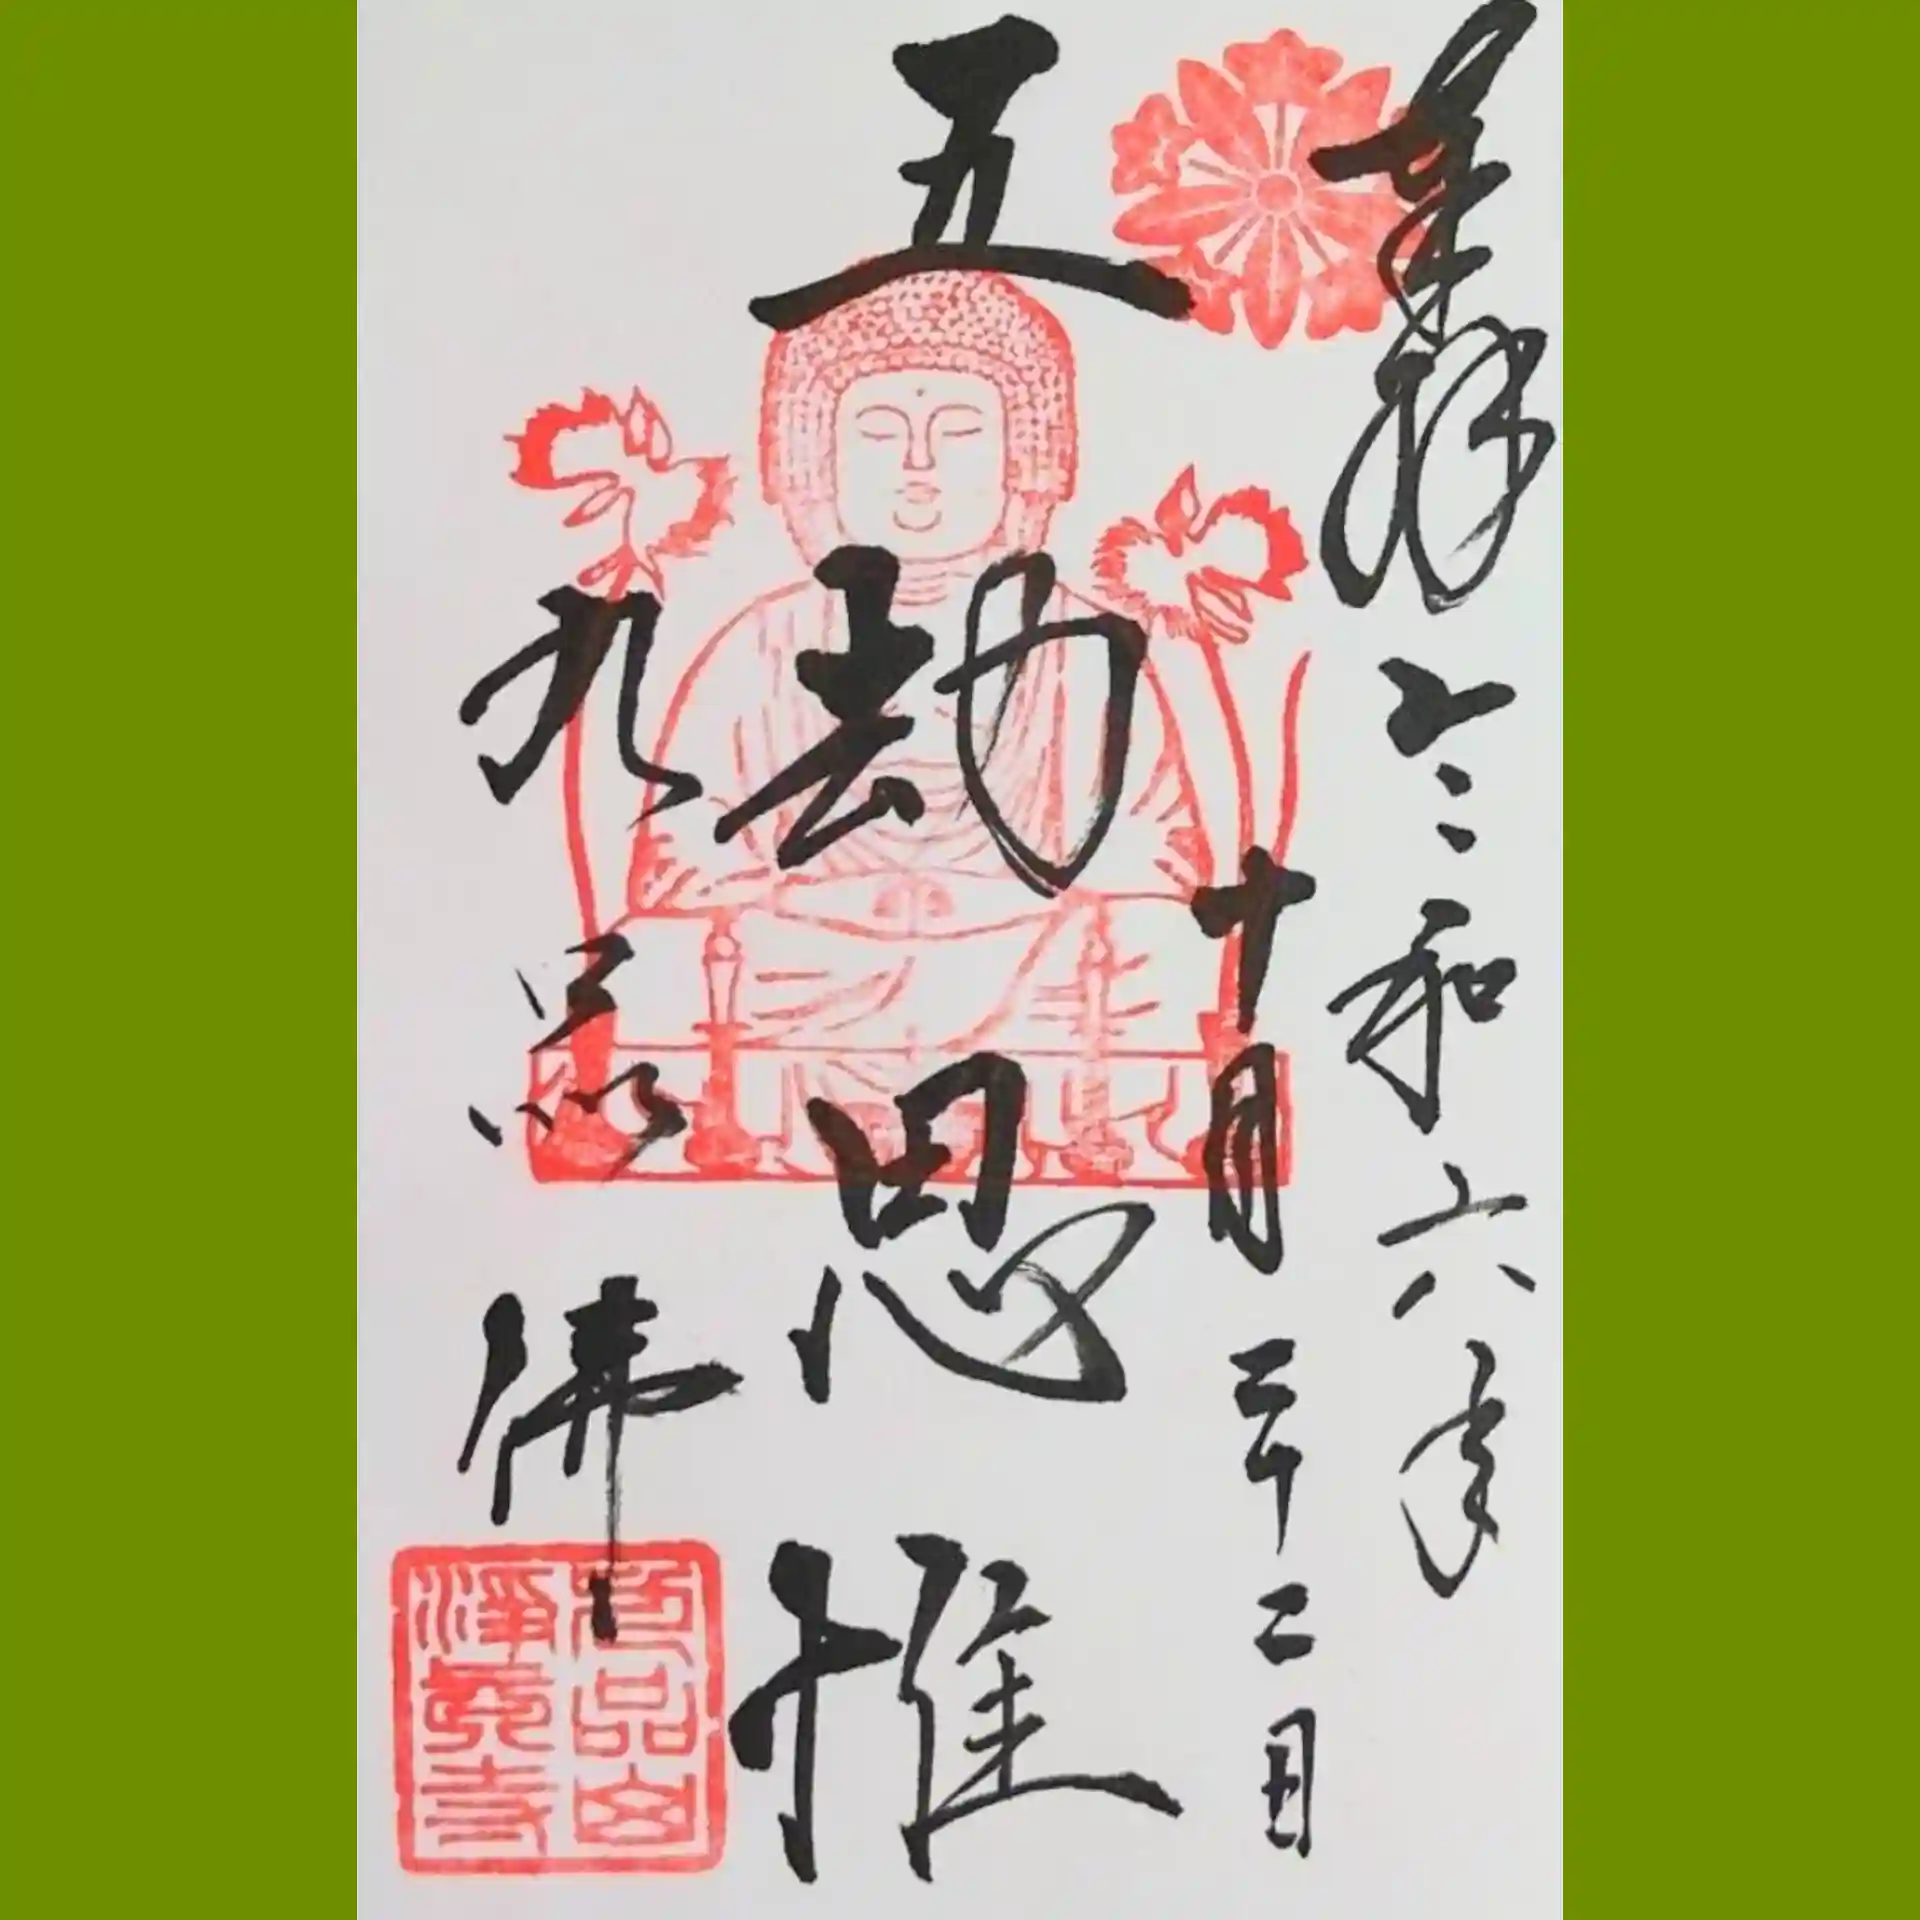 奉拝
令和六年
十月二十二日
五劫思惟
九品佛
九品山
淨真寺